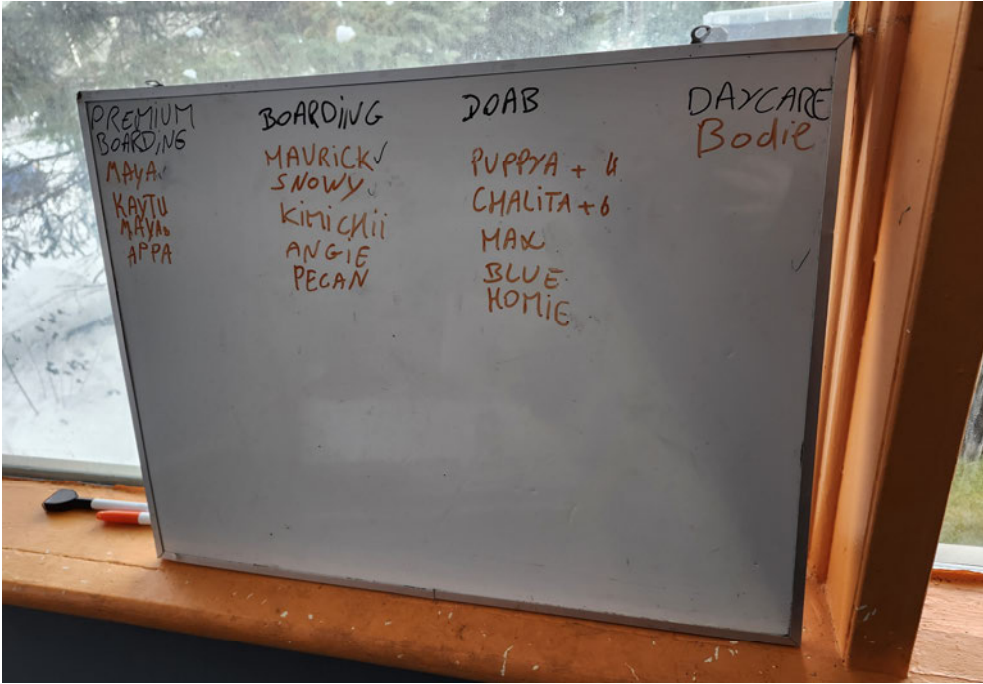 PREMIUM
BOARDING
MAYA ✓
KAYTU
APPA
BOARDiNG
MAURiCK ✓
SNOWY ✓
KiMiCHii
ANGiE
PECAN
DOAB
PUPPYA + 4
CHALiTA + 6
MAX
BLUE
HOMiE
DAYCARE
Bodie
✓